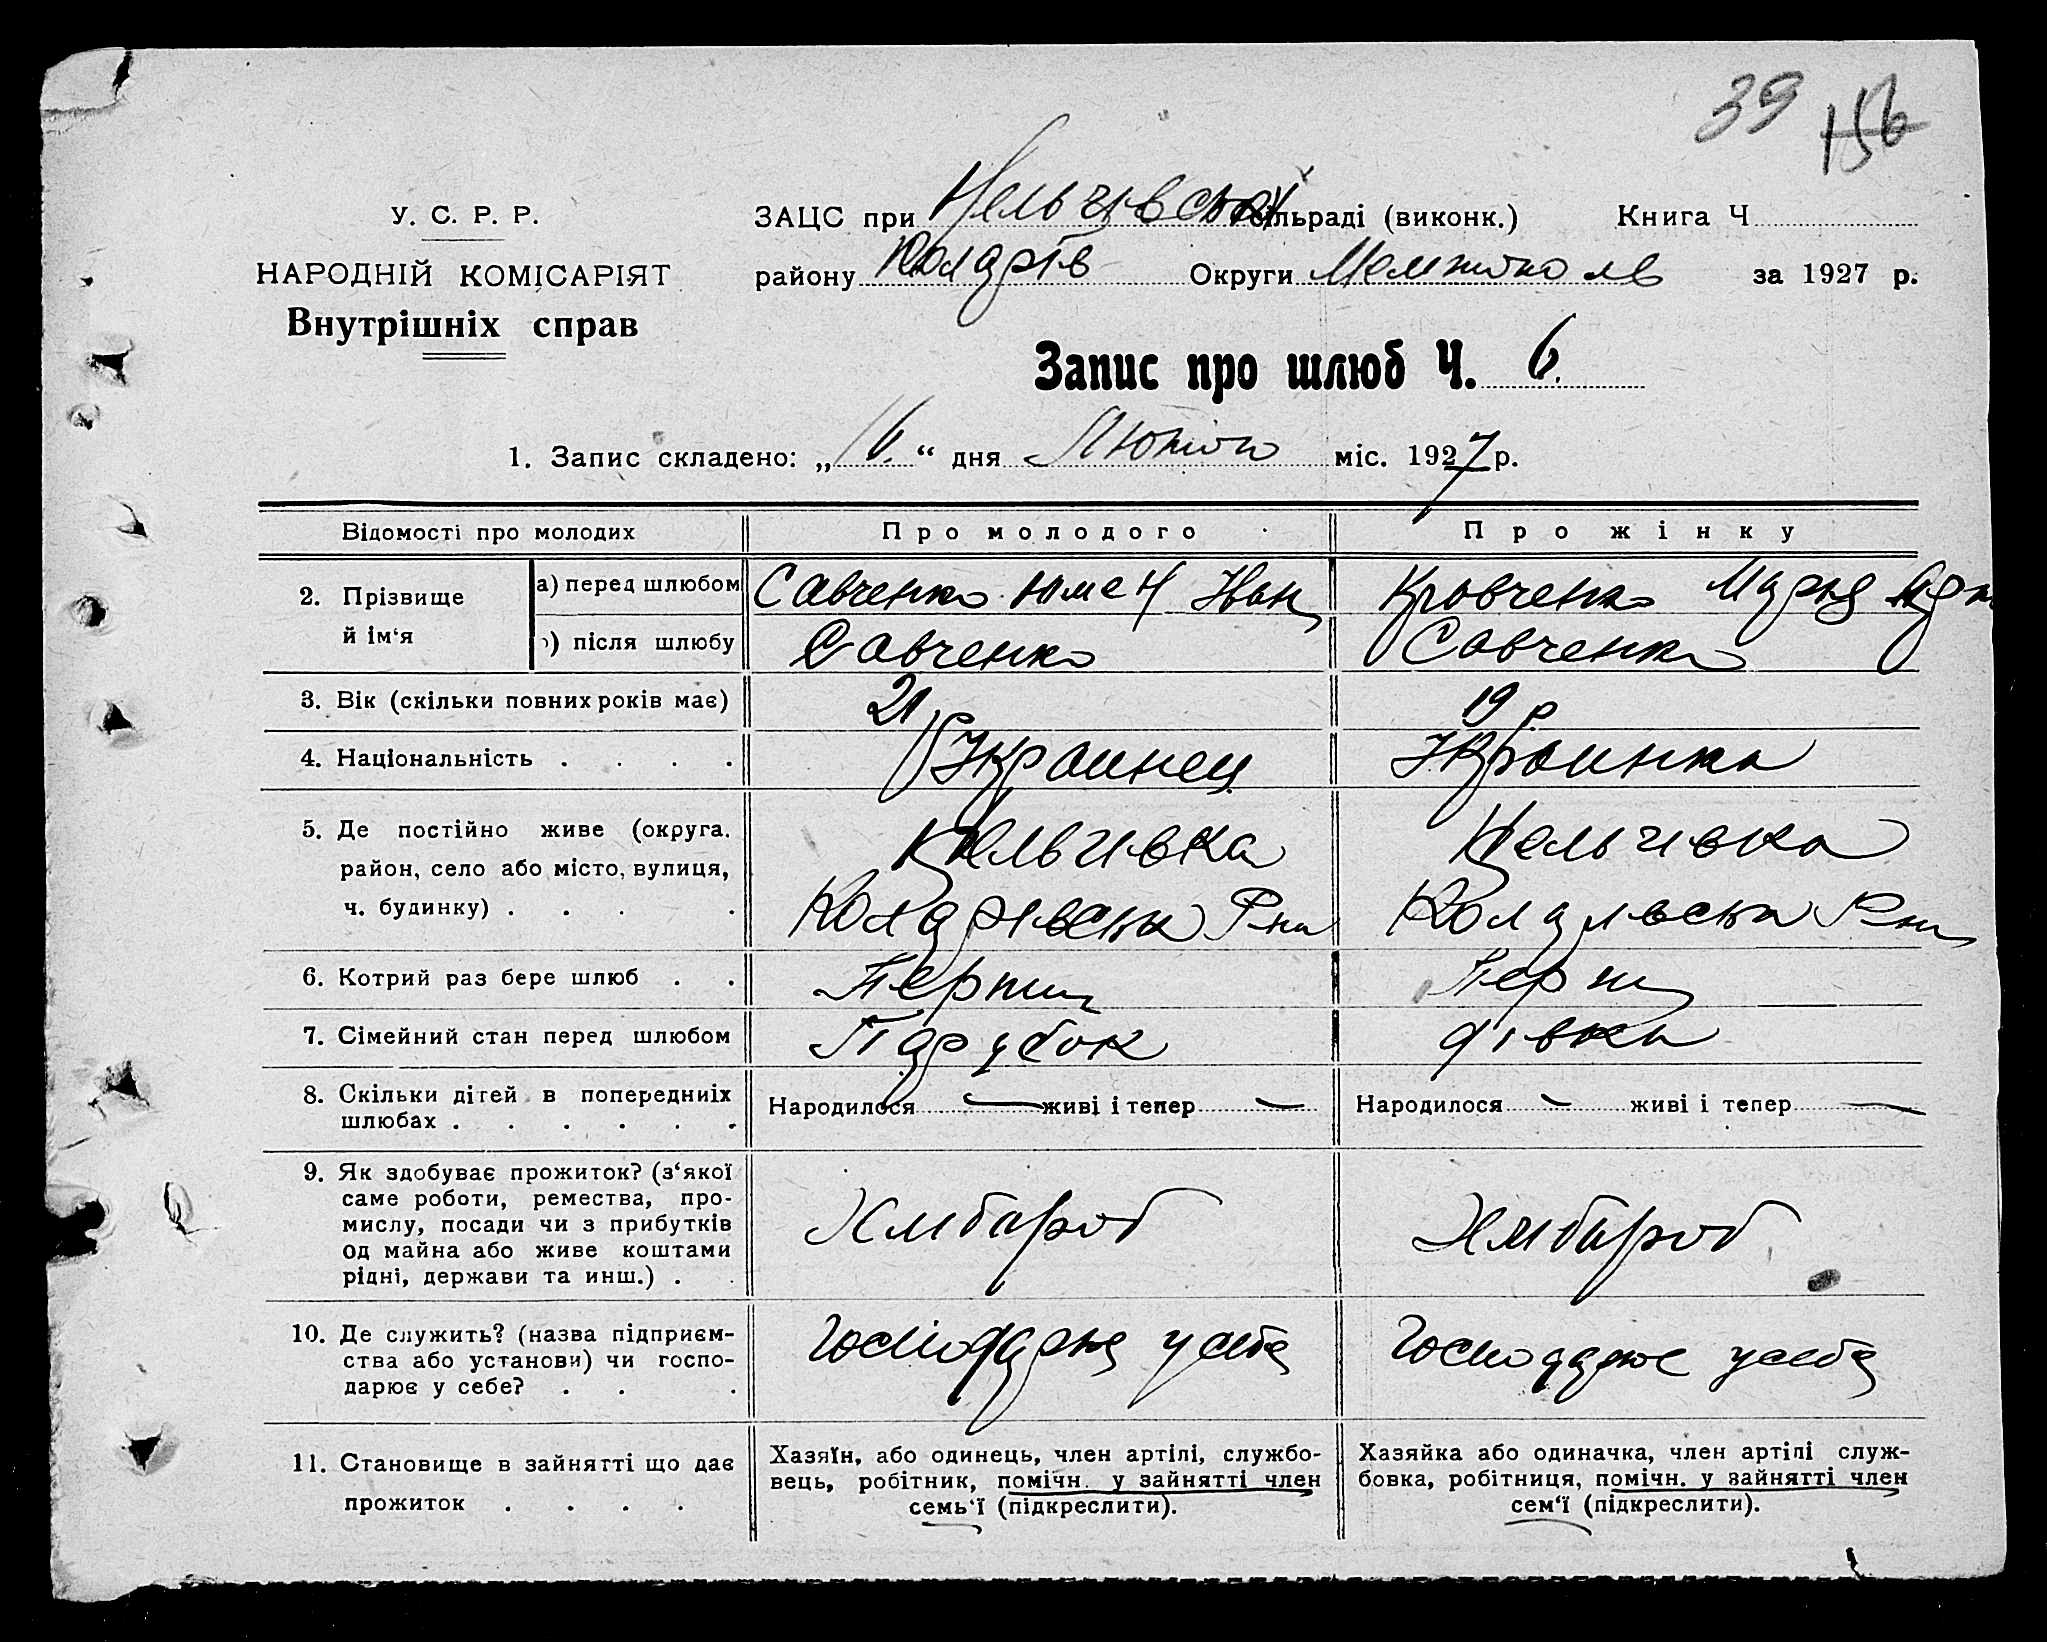 39 156
У. С. Р. Р.
НАРОДНІЙ КОМІСАРІЯТ
Внутрішніх справ
ЗАЦС при Нельгівській сільраді (виконк.) Книга Ч
району Коларів Округи за 1927 р.
Запис про шлюб Ч. 6.
1. Запис складено: „ “ дня Лютого міс. 1927 р.
Відомості про молодих Про молодого Про жінку
2. Прізвище й ім‘я
а) перед шлюбом Савченко Іван Кравченко Марья
б) після шлюбу Савченко Савченко
3. Вік (скільки повних років має) 21 р 19 р
4. Національність . . . . Украинец Украинка
5. Де постійно живе (округа, район, село або місто, вулиця, ч. будинку) . . . .
Нельгивка Нельгивка
Коларівська Рна Рна
6. Котрий раз бере шлюб . . Перши Перши
7. Сімейний стан перед шлюбом Парубок дівка
8. Скільки дітей в попередніх шлюбах . . . . . .
Народилося — живі і тепер — Народилося — живі і тепер —
9. Як здобуває прожиток? (з‘якої саме роботи, ремества, промислу, посади чи з прибутків од майна або живе коштами рідні, держави та инш.) . .
Хлібороб Хлібороб
10. Де служить? (назва підприємства або установи) чи господарює у себе? . . .
Господарює у себе Господарює у себе
11. Становище в зайнятті що дає прожиток . . . .
Хазяїн, або одинець, член артілі, службовець, робітник, помічн. у зайнятті член семь‘ї (підкреслити).
Хазяйка або одиначка, член артілі службовка, робітниця, помічн. у зайнятті член сем‘ї (підкреслити).